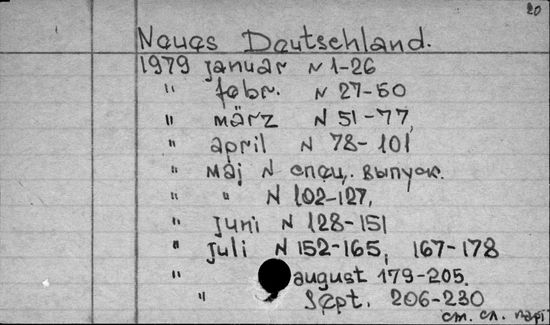 20
Neues Deutschland.
1979 januar N 1-26
" febr. N 27-50
" März N 51-77,
" april N 78-101
" Maj N спец. выпуск.
" " N 102-127,
" Juni N 128-151
" Juli N 152-165, 167-178
" august 179-205.
" Sept. 206-230
см. сл.